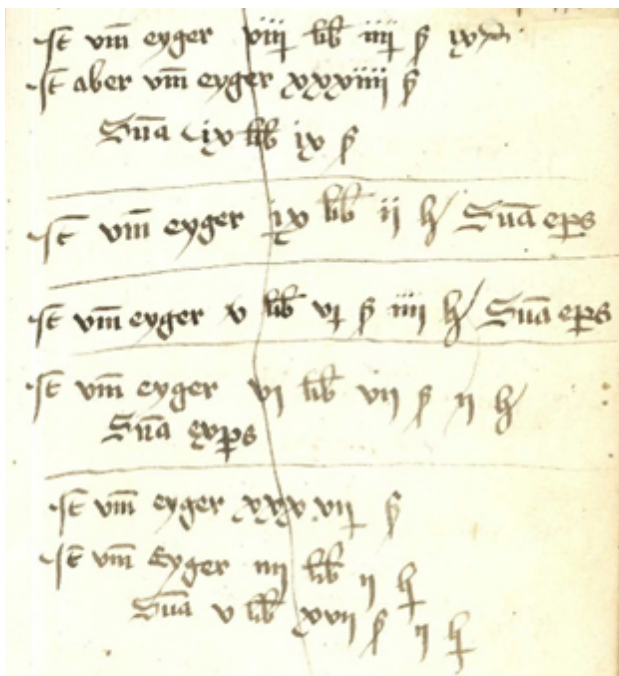 It vm̄ eyger viij lib iiij ß ix
It aber vm̄ eyger xxxiiij ß
Sūa ix lib ix ß
It vm̄ eyger ix lib ij h Sūa eps
It vm̄ eyger v lib vj ß iiij h Sūa eps
It vm̄ eyger vj lib vij ß ij h
Sūa exps
It vm̄ eyger xxxvij ß
It vm̄ Eyger iiij lib ij h
Sūa v lib xvij ß ij h